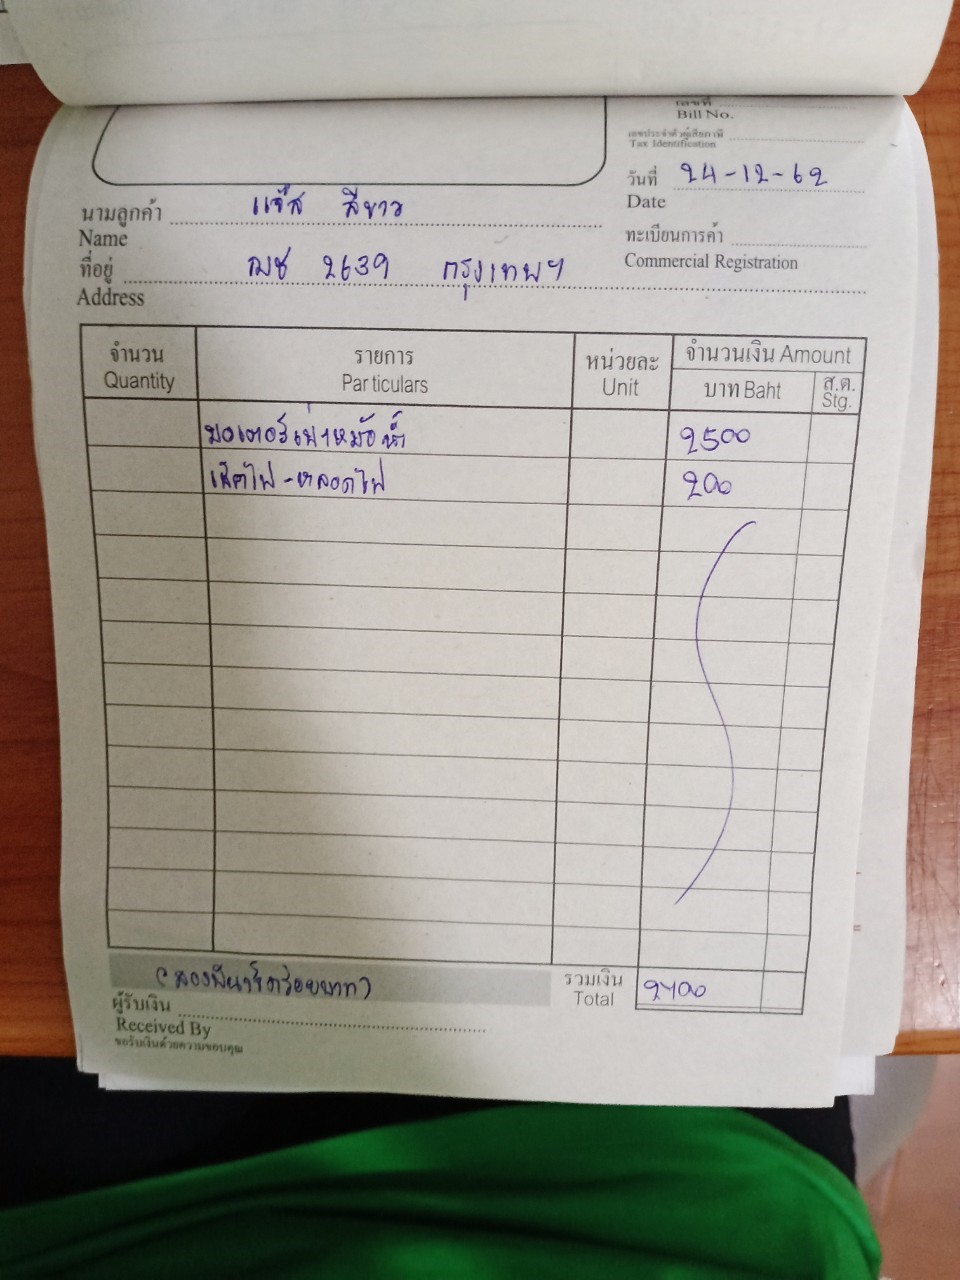 เลขที่
Bill No.
เลขประจำตัวผู้เสียภาษี
Tax Identification
วันที่ 24-12-62
Date
นามลูกค้า แจ๊ส สีขาว
Name
ทะเบียนการค้า
Commercial Registration
ที่อยู่ ฌช 2639 กรุงเทพฯ
Address
จำนวน รายการ หน่วยละ จำนวนเงิน Amount
Quantity Particulars Unit บาท Baht ส.ต. Stg.
มอเตอร์เป่าหม้อน้ำ 2500
เช็คไฟ-หลอดไฟ 200
(สองพันเจ็ดร้อยบาท) รวมเงิน 2700
Total
ผู้รับเงิน
Received By
ขอรับเงินด้วยความขอบคุณ